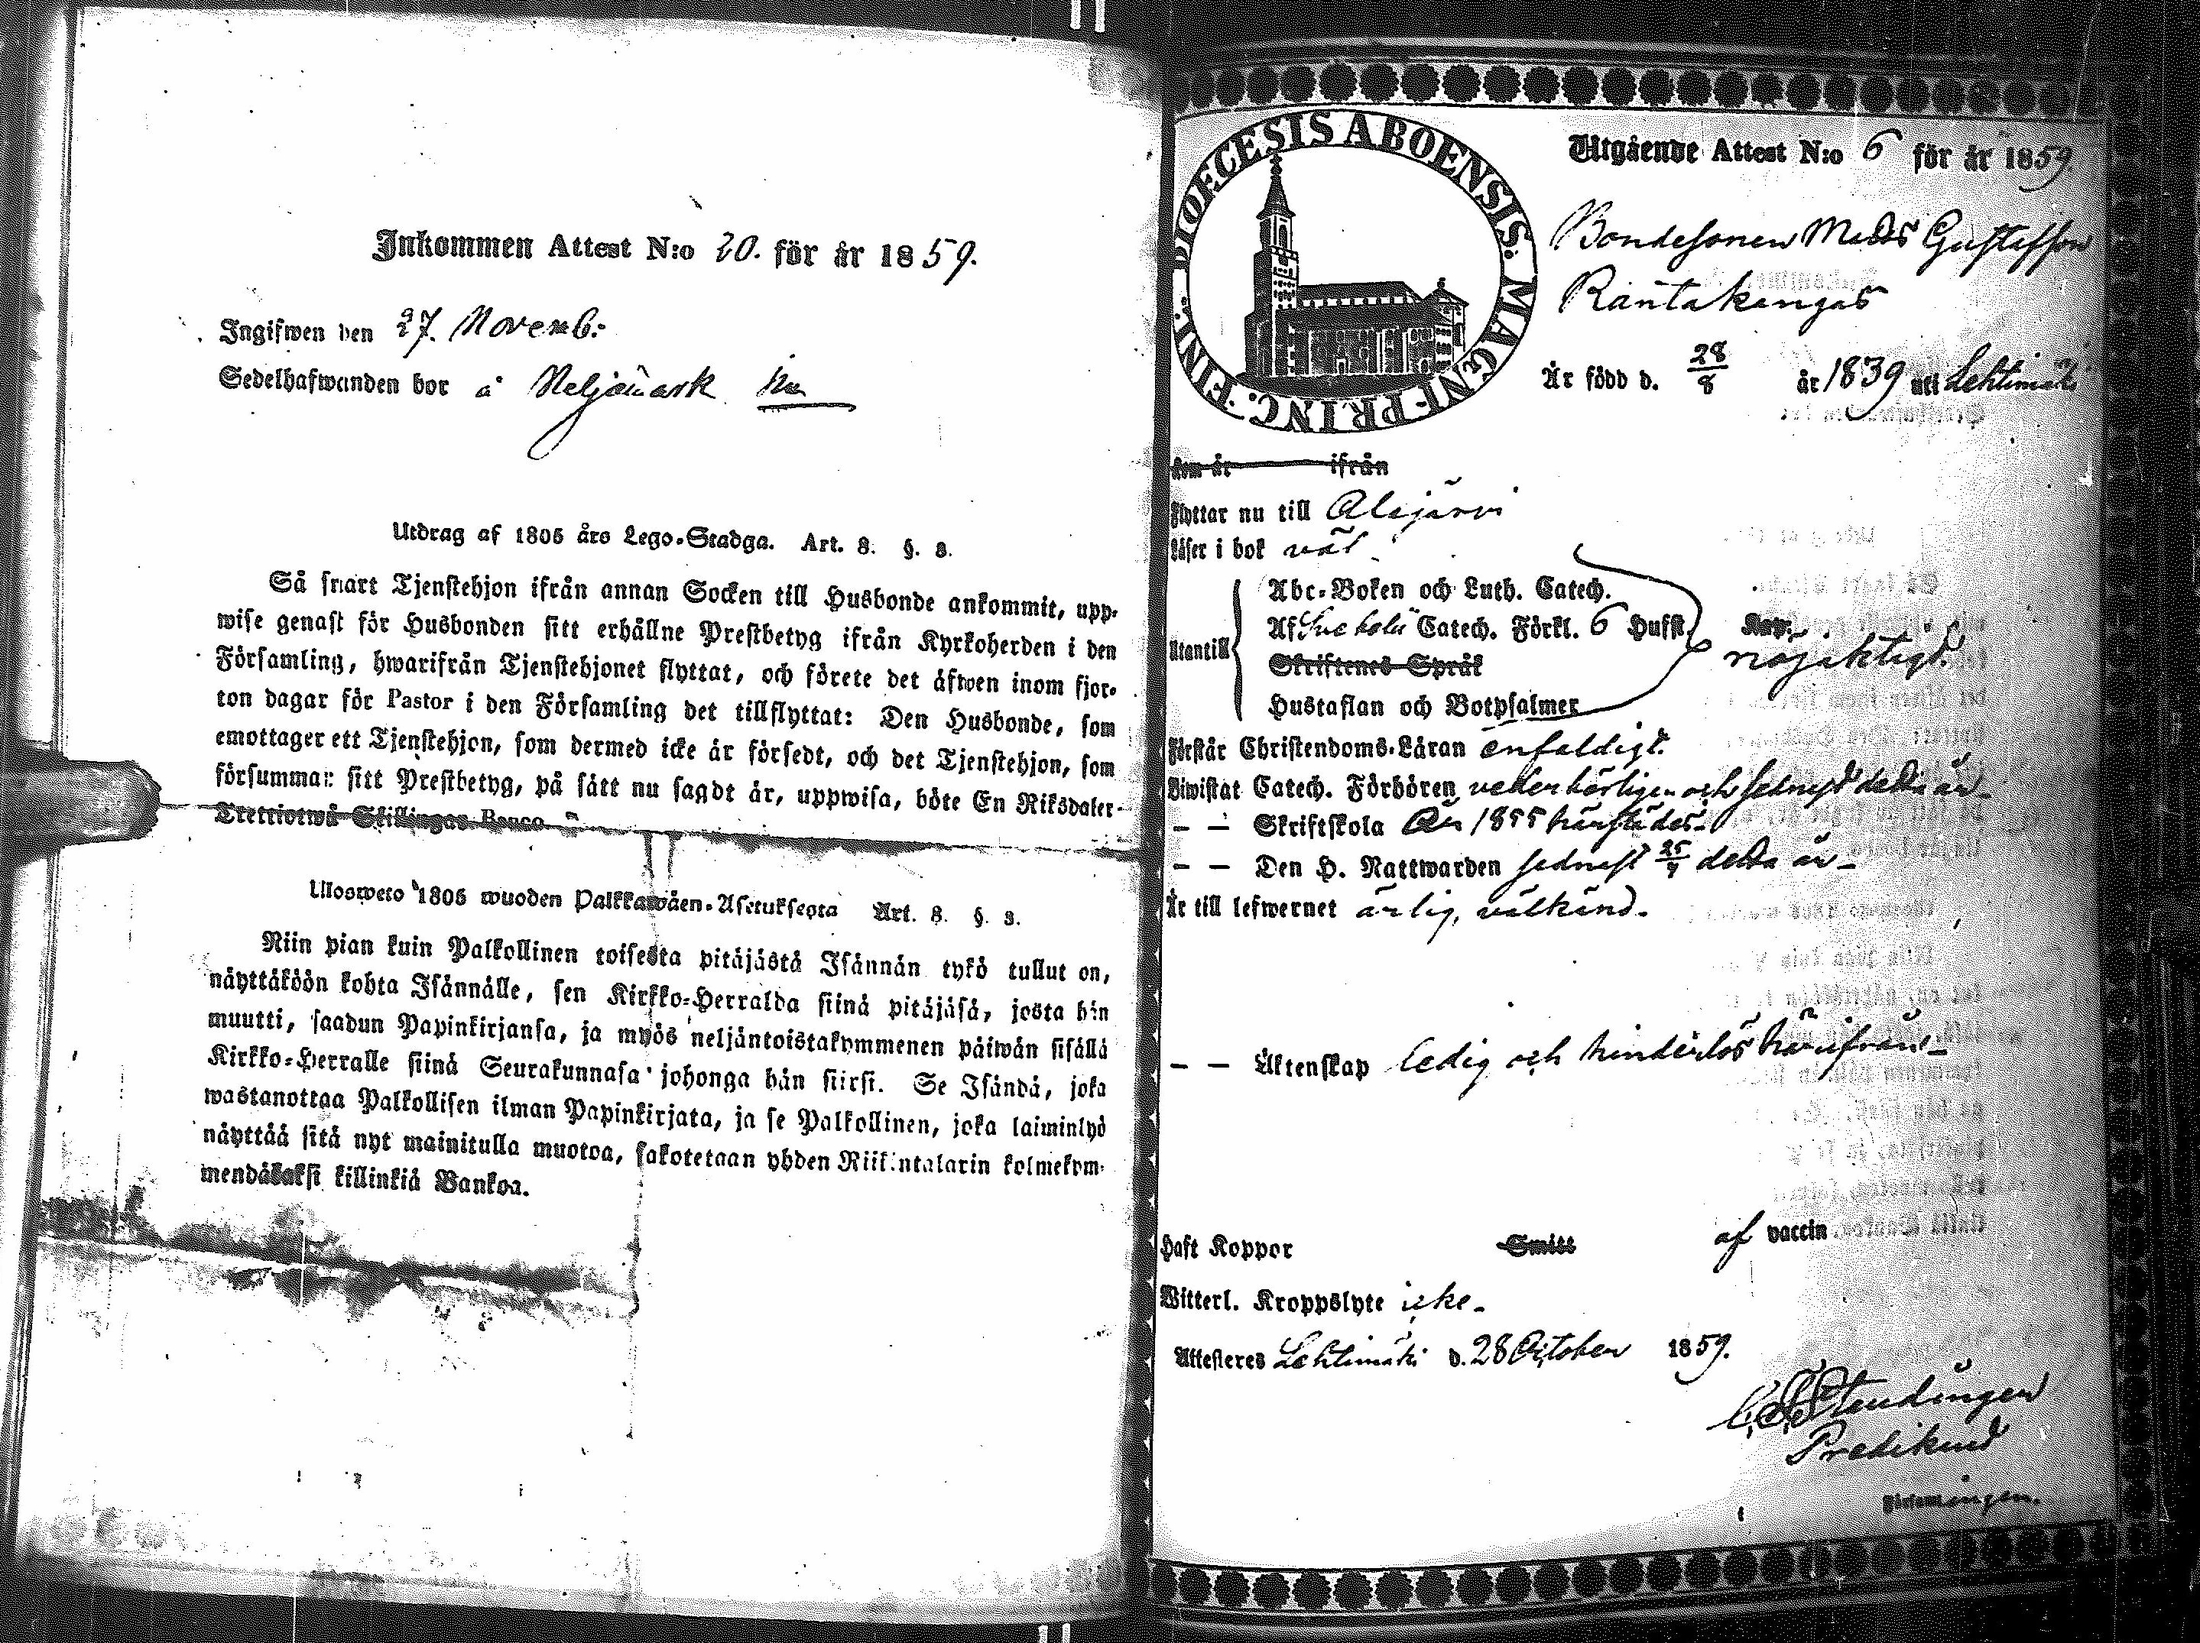 Inkommen Attest N:o 20. för år 1859.
Ingifwen den 27. Novemb:
Sedelhafwanden bor å Neljämark
Utdrag af 1805 års Lego-Stadga. Art. 8. §. 8.
Så snart Tjenstehjon ifrån annan Socken till Husbonde ankommit, upp-
wise genast för Husbonden sitt erhållne Prestbetyg ifrån Kyrkoherden i den
Församling, hwarifrån Tjenstehjonet flyttat, och förete det äfwen inom fjor-
ton dagar för Pastor i den Församling det tillflyttat: Den Husbonde, som
emottager ett Tjenstehjon, som dermed icke är försedt, och det Tjenstehjon, som
försummar sitt Prestbetyg, på sätt nu sagdt är, uppwisa, böte En Riksdaler
Trettiotwå Skillingar Banco.
Ulosweto 1805 wuoden Palkkawäen-Asetuksesta Art. 8. §. 8.
Niin pian kuin Palkollinen toisesta pitäjästä Isännän tykö tullut on,
näyttäköön kohta Isännälle, sen Kirkko-Herralda siinä pitäjäsä, josta hän
muutti, saadun Papinkirjansa, ja myös neljäntoistakymmenen päiwän sisällä
Kirkko-Herralle siinä Seurakunnasa johonga hän siirsi. Se Isändä, joka
wastanottaa Palkollisen ilman Papinkirjata, ja se Palkollinen, joka laiminlyö
näyttää sitä nyt mainitulla muotoa, sakotetaan yhden Riikintalarin kolmekym-
mendäkaksi killinkiä Bankoa.
DIOECESIS ABOENSIS. MAGNI-PRINC. FINL.
Utgående Attest N:o 6 för år 1859
Bondesonen Mats Gustafsson
Rantakangas
Är född d. 28/8 år 1839 uti Lehtimäki
kom år ifrån
flyttar nu till Alajärvi
läser i bok väl
Utantill
Abc-Boken och Luth. Catech.
Af Svebelii Catech. Förkl. 6 Hufst.
Skriftenes Språk
nöjaktigt.
Hustaflan och Botpsalmer
Förstår Christendoms-Läran enfaldigt.
Biwistat Catech. Förhören vederbörligen och sednast detta år
— — Skriftskola År 1855 härstädes.
— — Den H. Nattwarden sednast 25/9 detta år
Är till lefwernet ärlig, välkänd.
— — Äktenskap ledig och hinderlös härifrån
Haft Koppor Smitt af vaccin
Witterl. Kroppslyte icke
Attesteras Lehtimäki d. 28 October 1859.
Predikant
Församlingen.